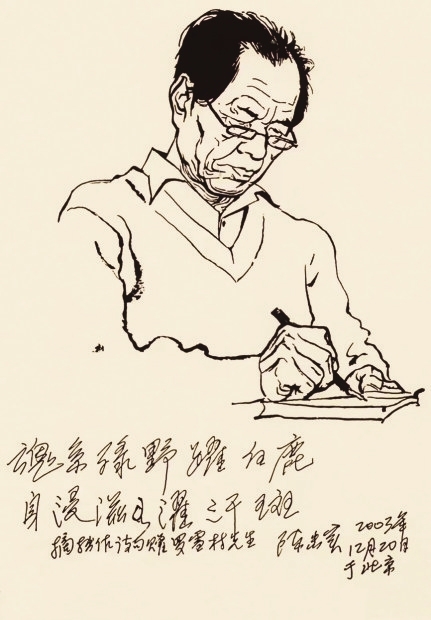 魂系绿野躍白鹿
身浸滋水濯汗斑
摘拙作诗句赠罗雪村先生 陈忠实 2003年
12月20日
于北京